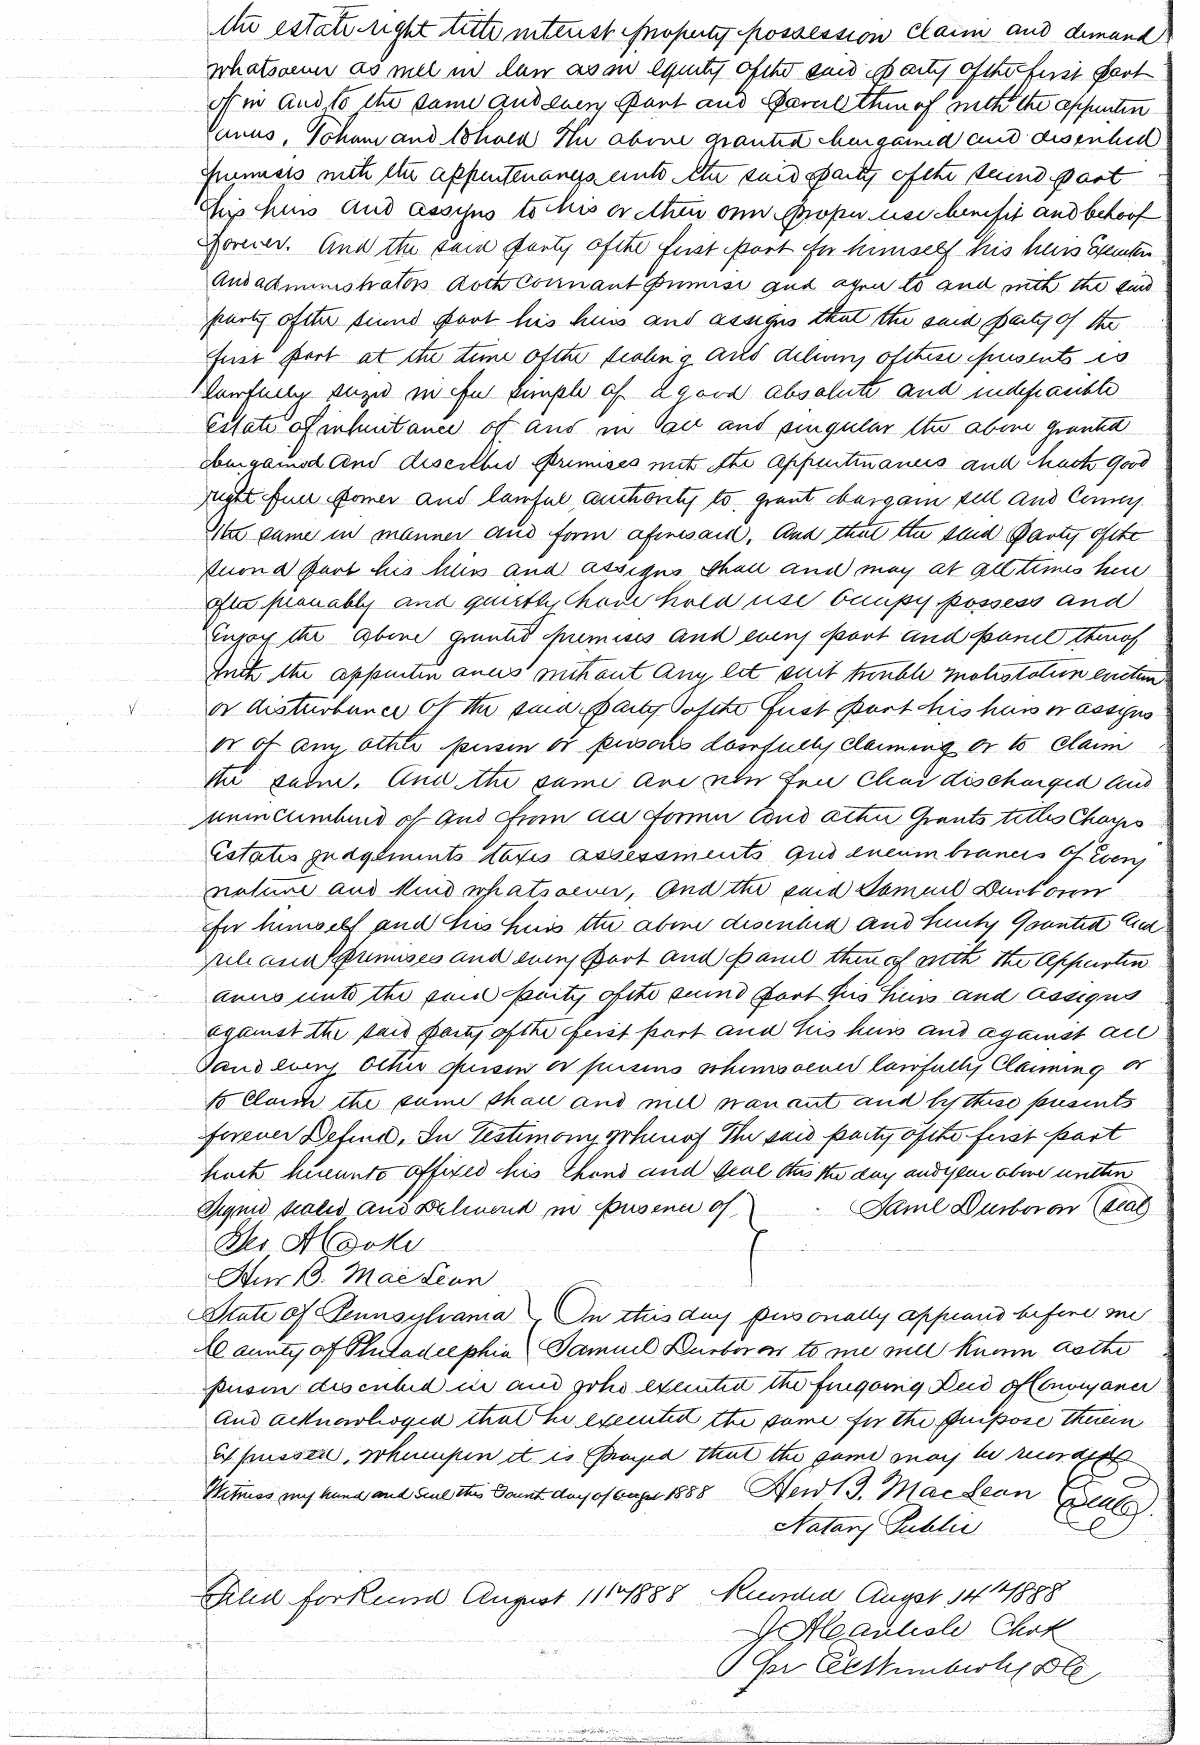 the estate right title interest property possession claim and demand
whatsoever as well in law as in equity of the said party of the first part
of in and to the same and every part and parcel thereof with the appurten
ances, To have and to hold The above granted bargained and described
premises with the appurtenances unto the said party of the second part
his heirs and assigns to his or their own proper use benefit and behoof
forever. And the said party of the first part for himself his heirs Executors
And administrators doth covenant promise and agree to and with the said
party of the second part his heirs and assigns that the said party of the
first part at the time of the sealing and delivery of these presents is
lawfully seized in fee simple of a good absolute and indefeasible
Estate of inheritance of and in all and singular the above granted
bargained and described premises with the appurtenances and hath good
right full power and lawful authority to grant bargain sell and Convey
the same in manner and form aforesaid. And that the said Party of the
second part his heirs and assigns shall and may at all times here
after peaceably and quietly have hold use occupy possess and
Enjoy the above granted premises and every part and parcel thereof
with the appurtenances without any let suit trouble molestation eviction
or disturbance of the said party of the first part his heirs or assigns
or of any other person or persons lawfully claiming or to claim
the same. And the same are now free clear discharged and
unincumbered of and from all former and other Grants titles Charges
Estates judgements taxes assessments and encumbrances of Every
nature and kind whatsoever, And the said Samuel Durborow
for himself and his heirs the above described and hereby Granted and
released premises and every part and parcel thereof with the Appurten
ances unto the said party of the second part his heirs and assigns
against the said party of the first part and his heirs and against all
and every other person or persons whomsoever lawfully Claiming or
to Claim the same shall and will warrant and by these presents
forever Defend. In Testimony Whereof The said party of the first part
hath hereunto affixed his hand and seal this the day and year above written
Signed sealed and Delivered in presence of } Saml Durborow (seal)
Hew B. MacLean
State of Pennsylvania } On this day personally appeared before me
County of Philadelphia } Samuel Durborow to me well known as the
person described in and who executed the foregoing Deed of Conveyance
And acknowledged that he executed the same for the purpose therein
Expressed, whereupon it is prayed that the same may be recorded
Witness my hand and seal this day of August 1888 Hew B. MacLean (Seal)
Notary Public
Filed for Record August 11th 1888 Recorded Augst 14th 1888
J A Carlisle Clerk
Per Wimberly DC